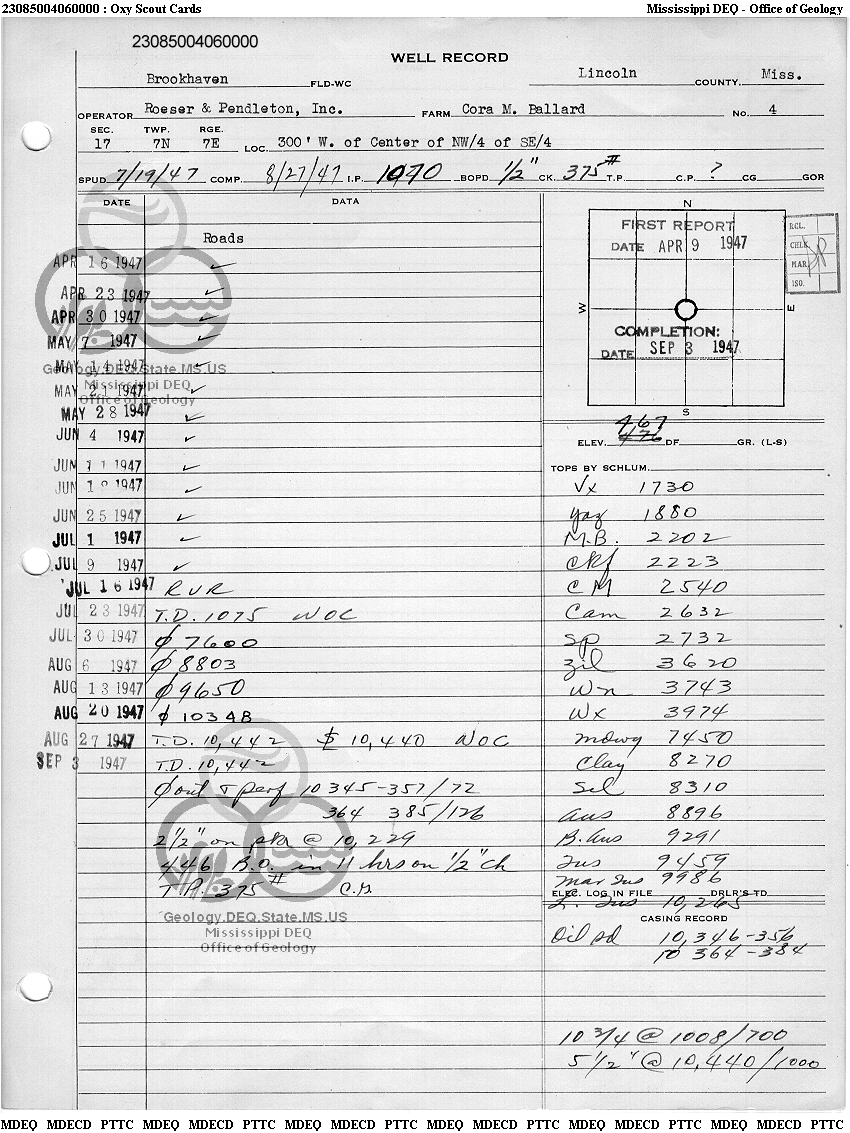 23085004060000 : Oxy Scout Cards Mississippi DEQ - Office of Geology
23085004060000
WELL RECORD
Brookhaven FLD-WC Lincoln COUNTY. Miss.
OPERATOR Roeser & Pendleton, Inc. FARM Cora M. Ballard NO. 4
SEC. TWP. RGE.
17 7N 7E LOC. 300' W. of Center of NW/4 of SE/4
SPUD 7/19/47 COMP. 8/27/47 I.P. 1070 BOPD 1/2" CK. 375# T.P. C.P. ? CG GOR
DATE DATA
Roads
APR 16 1947 ✓
APR 23 1947 ✓
APR 30 1947 ✓
MAY 7 1947 ✓
MAY 14 1947 ✓
MAY 21 1947 ✓
MAY 28 1947 ✓
JUN 4 1947 ✓
JUN 11 1947 ✓
JUN 18 1947 ✓
JUN 25 1947 ✓
JUL 1 1947 ✓
JUL 9 1947 ✓
JUL 16 1947 RUR
JUL 23 1947 T.D. 1075 WOC
JUL 30 1947 ϕ 7600
AUG 6 1947 ϕ 8803
AUG 13 1947 ϕ 9650
AUG 20 1947 ϕ 10348
AUG 27 1947 T.D. 10,442 10,440 WOC
SEP 3 1947 T.D. 10,442
ϕ out & perf 10345-357/72
364 385/126
2 1/2" on pkr @ 10,229
446 B.O. in 11 hrs on 1/2" ch
T.P. 375# C.G.
Geology.DEQ.State.MS.US
Mississippi DEQ
Office of Geology
Geology.DEQ.State.MS.US
Mississippi DEQ
Office of Geology
N
W
E
S
FIRST REPORT
DATE APR 9 1947
COMPLETION:
DATE SEP 3 1947
RCL.
CHLK.
MAR.
ISO.
467
ELEV. 476 DF GR. (L-S)
TOPS BY SCHLUM.
Vx 1730
Yaz 1880
M.B. 2202
Ckf 2223
CM 2540
Cam 2632
Sp 2732
Zil 3620
Wn 3743
Wx 3974
mdwy 7450
Clay 8270
Sel 8310
Aus 8896
B. Aus 9291
Tus 9459
Mar Tus 9986
ELEC. LOG IN FILE DRLR'S TD
L. Tus 10,265
CASING RECORD
Oil sd 10,346-356
10 364-384
10 3/4 @ 1008/700
5 1/2" @ 10,440/1000
MDEQ MDECD PTTC MDEQ MDECD PTTC MDEQ MDECD PTTC MDEQ MDECD PTTC MDEQ MDECD PTTC MDEQ MDECD PTTC